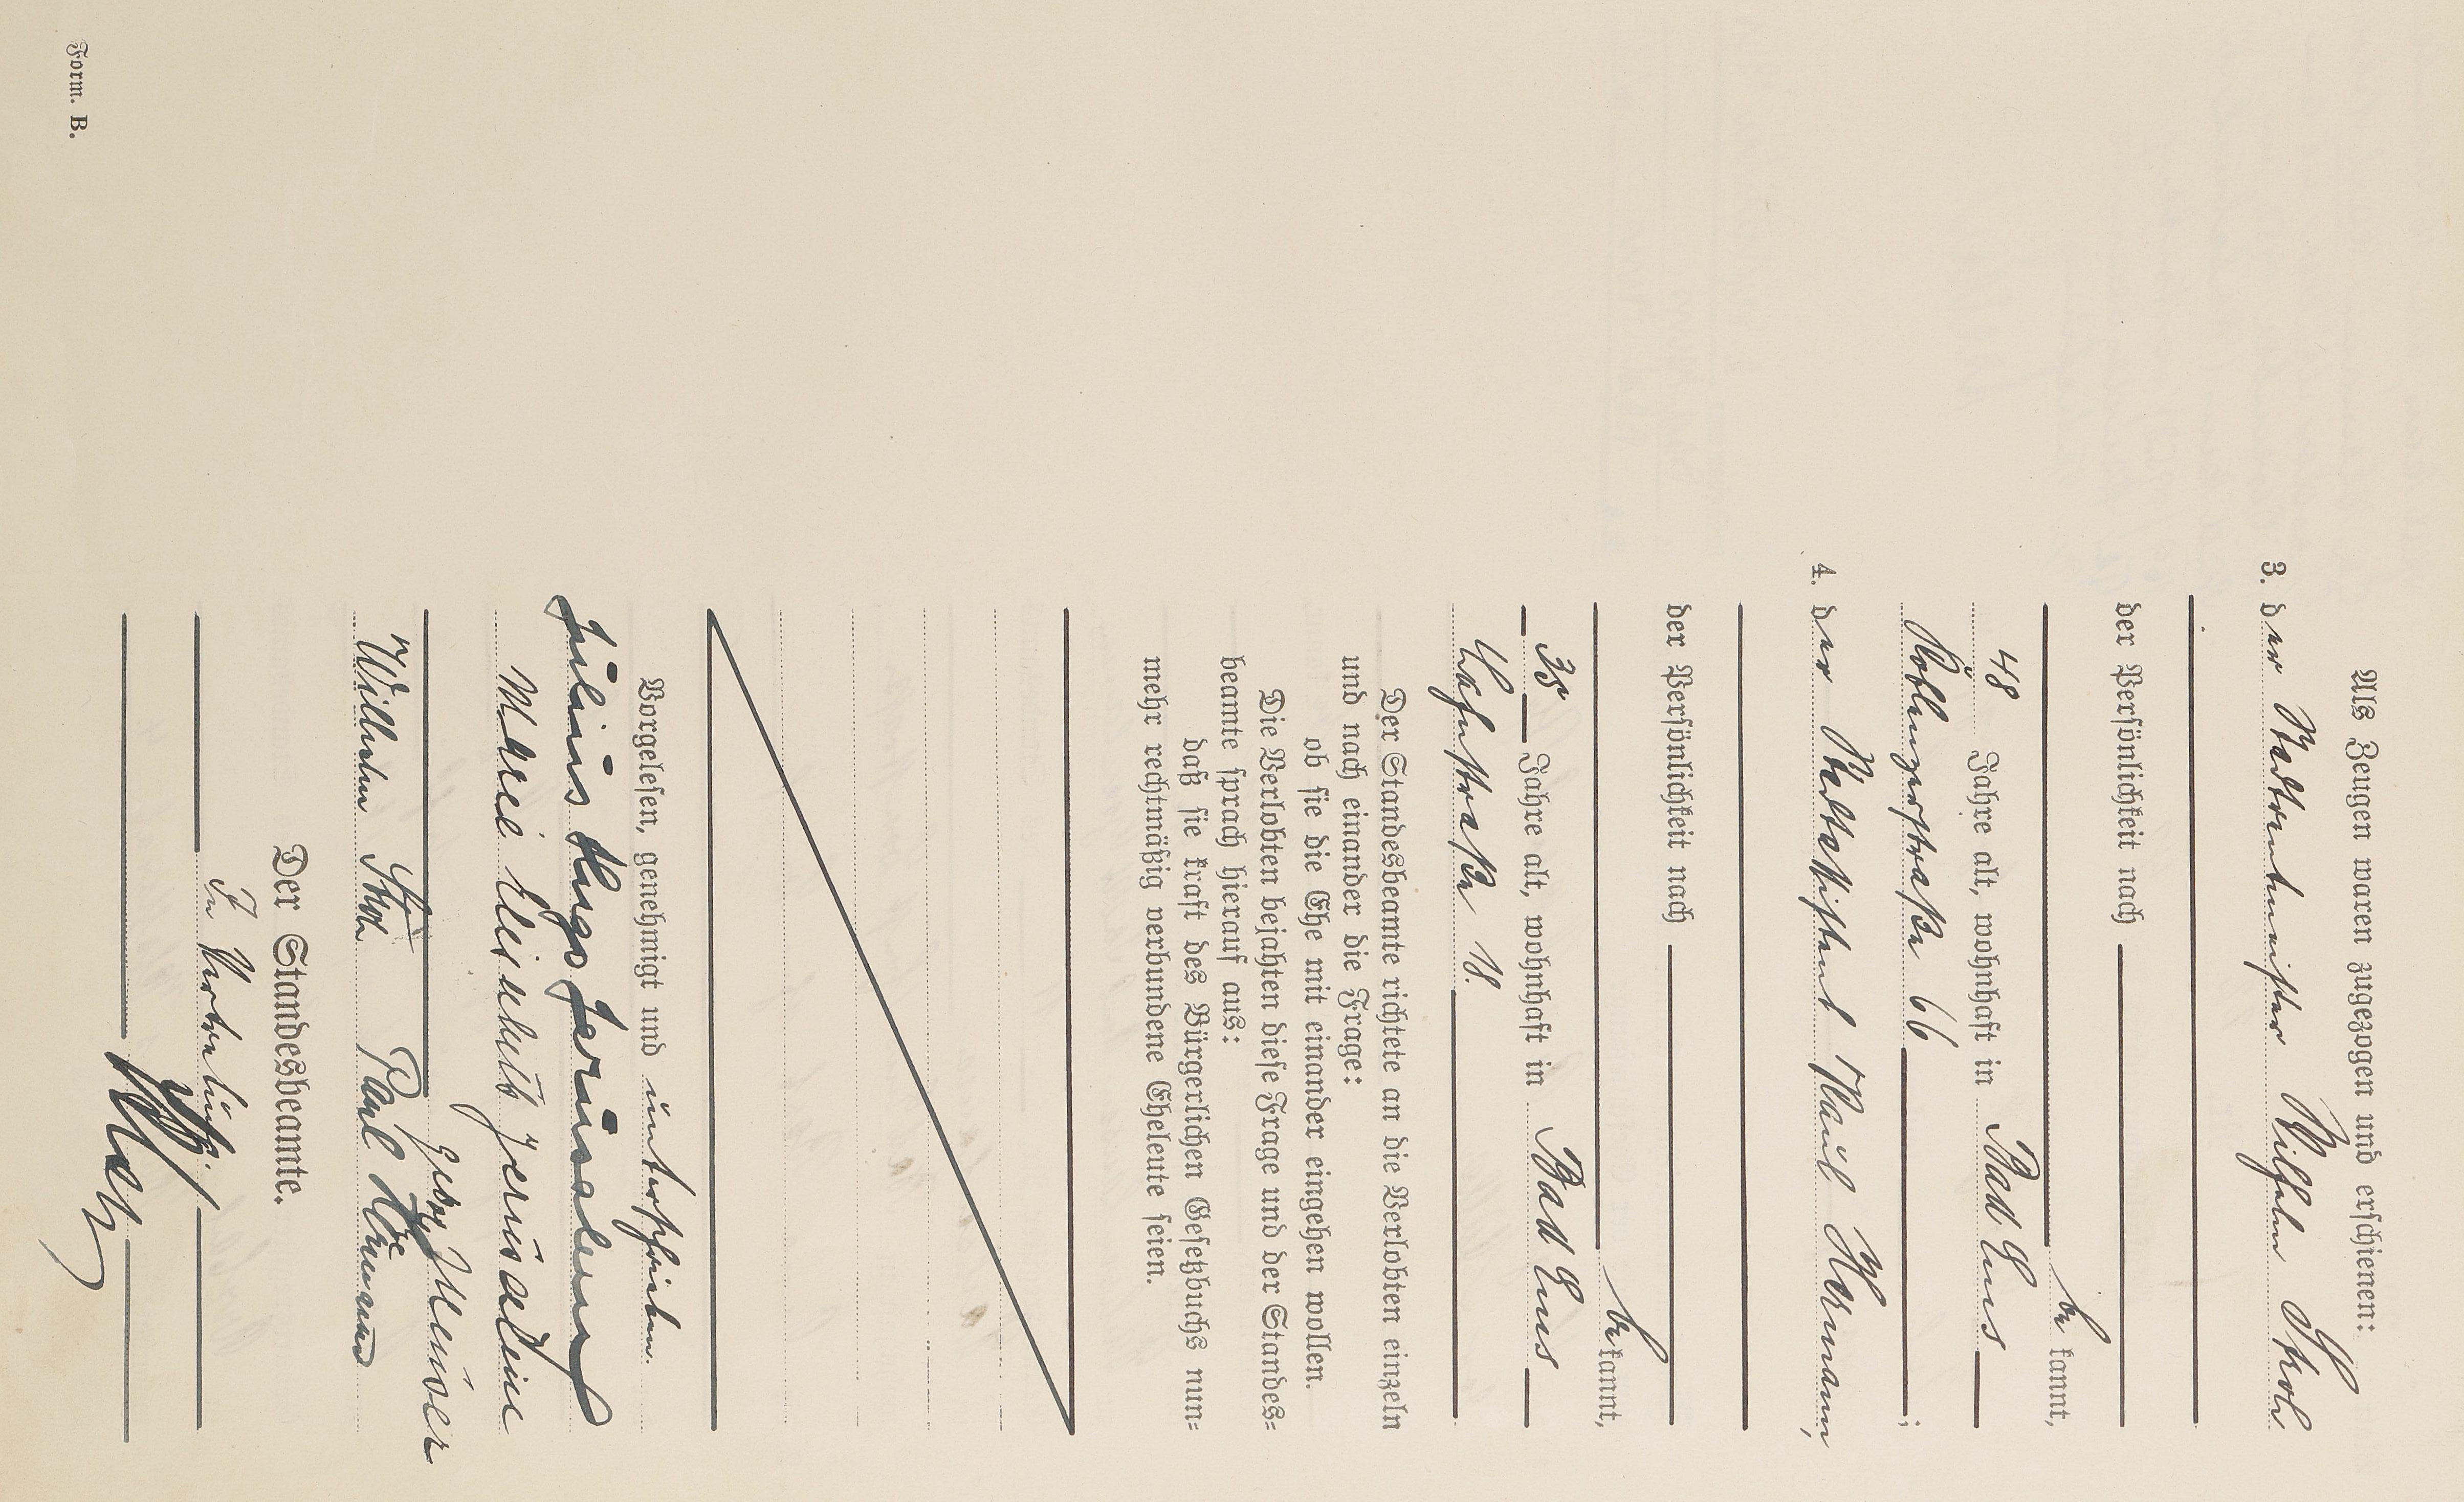 Als Zeugen waren zugezogen und erschienen:
3. der Stadtrentmeister Wilhelm Stroh
der Persönlichkeit nach
be kannt,
48 Jahre alt, wohnhaft in Bad Ems
Koblenzerstraße 66 ;
4. der Stadtassistent Paul Hermann,
der Persönlichkeit nach
be kannt,
35 Jahre alt, wohnhaft in Bad Ems
Lahnstraße 18.
Der Standesbeamte richtete an die Verlobten einzeln
und nach einander die Frage:
ob sie die Ehe mit einander eingehen wollen.
Die Verlobten bejahten diese Frage und der Standes=
beamte sprach hierauf aus:
daß sie kraft des Bürgerlichen Gesetzbuchs nun=
mehr rechtmäßig verbundene Eheleute seien.
Vorgelesen, genehmigt und unterschrieben.
Julius Hugo Jerusalem
Marie Elisabeth Jerusalem
Wilhelm Stroh Paul Hermann
Der Standesbeamte.
In Vertretung
Form. B.